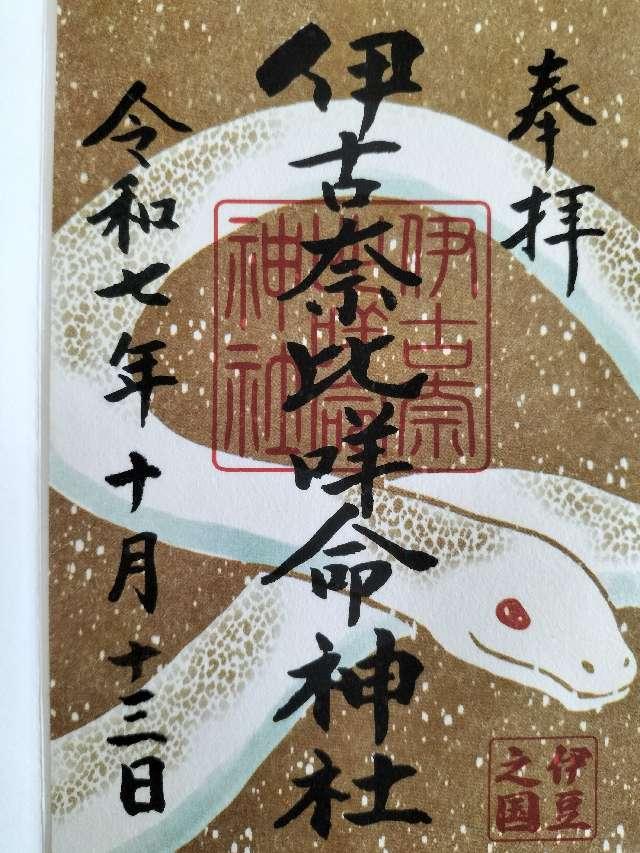 奉拝
伊古奈比咩命神社
伊古奈比咩命神社
令和七年十月十三日
伊豆之国